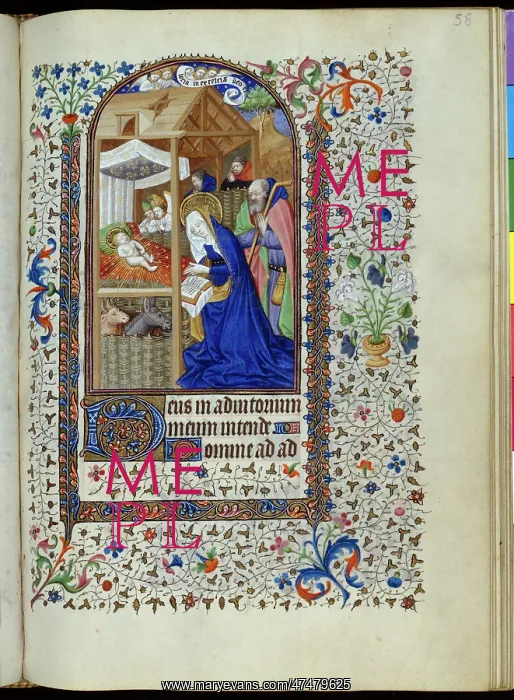 58
gloria in excelsis deo
ME
PL
Deus in adiutorium
meum intende
Domine ad ad
ME
PL
www.maryevans.com/47479625